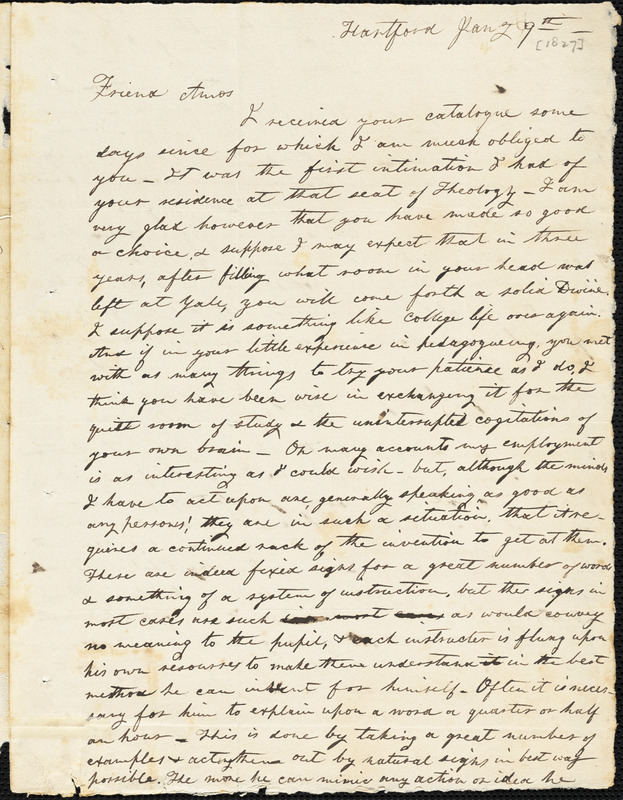 Hartford Jany 9th
[1827]
Friend Amos
I received your catalogue some
days since for which I am much obliged to
you – It was the first intimation I had of
your residence at that seat of Theology – I am
very glad however that you have made so good
a choice, & suppose I may expect that in three
years, after filling what room in your head was
left at Yale, you will come forth a solid Divine.
I suppose it is something like College life over again.
And if in your little experience in pedagogueing, you met
with as many things to try your patience as I do, I
think you have been wise in exchanging it for the
quiet room of study & the uninterrupted cogitations of
your own brain – On many accounts my employment
is as interesting as I could wish – but, although the minds
I have to act upon are generally speaking as good as
any persons', they are in such a situation, that it re-
quires a continued rack of the invention to get at them.
There are indeed fixed signs for a great number of words
& something of a system of instruction, but the signs in
most cases are such in most cases as would convey
no meaning to the pupil, & each instructer is flung upon
his own resourses to make them understand it in the best
method he can invent for himself – Often it is neces-
sary for him to explain upon a word a quarter or half
an hour – This is done by taking a great number of
examples & acting them out by natural signs in best way
possible. The more he can mimic any action or idea he